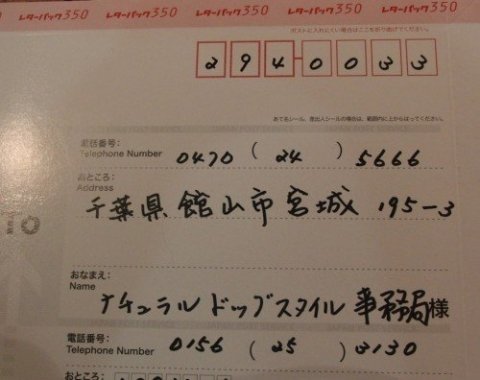 レターパック350 レターパック350 レターパック350 レターパック350
ポストに入れにくい場合はここを折り曲げてください。
294-0033
あて名シール、差出人シールの場合は、範囲内に上からはってください。
電話番号:
Telephone Number 0470 ( 24 ) 5666
おところ:
Address
千葉県館山市宮城 195-3
おなまえ:
Name
ナチュラルドッグスタイル 事務局様
電話番号:
Telephone Number 0156 ( 25 ) 3130
おところ: